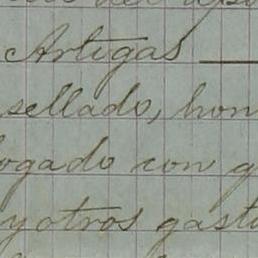 Artigas
sellado, hon
ogado con g
y otros gasto